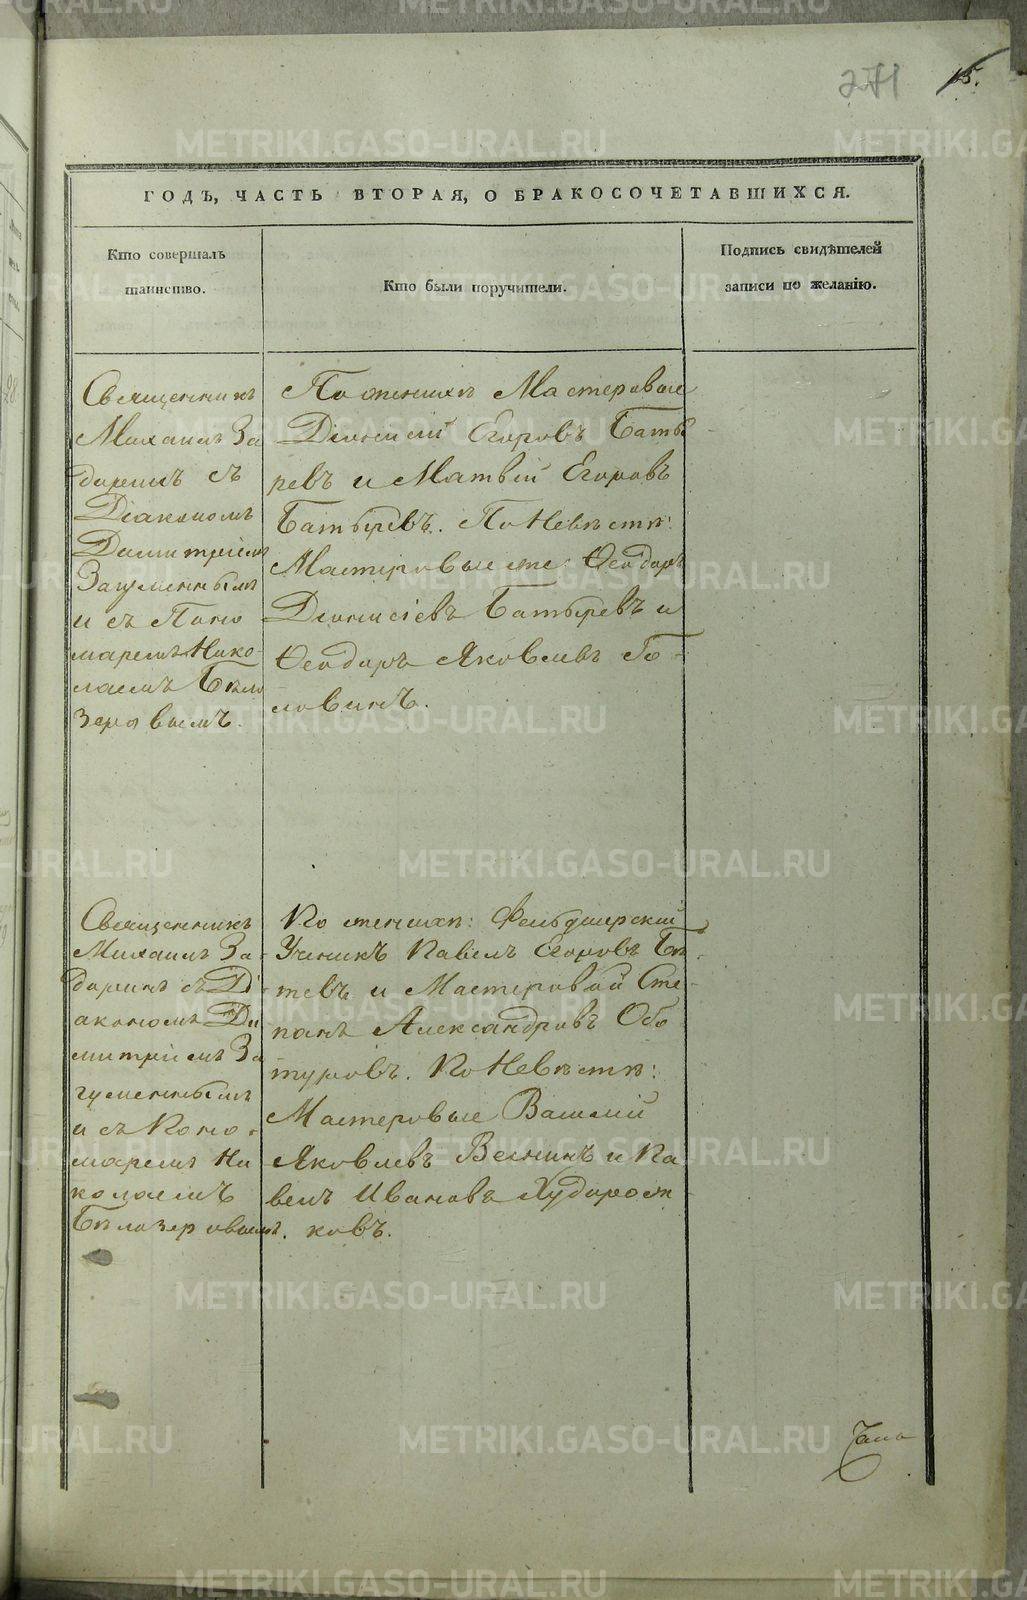 271 15.
ГОДЪ, ЧАСТЬ ВТОРАЯ, О БРАКОСОЧЕТАВШИХСЯ.
Кто совершалъ
таинство.
Кто были поручители.
Подпись свидѣтелей
записи по желанію.
Священникъ
Михаилъ За
доринъ съ
Діакономъ
Димитріемъ
Загуменнымъ
и съ Поно
маремъ Нико-
лаемъ Бѣло
зеровымъ.
По женихѣ Мастеровые
Діонисій Егоровъ Баты
ревъ и Матвій Егоровъ
Батыревъ. По Невѣстѣ:
Мастеровые же Ѳеодоръ
Діонисіевъ Батыревъ и
Ѳеодоръ Яковлевъ Го-
ловинъ.
Священникъ
Михаилъ За-
доринъ съ Ді-
акономъ Ди
митріемъ За
гуменнымъ
и съ Поно-
маремъ Ни
колаемъ
Бѣлозеровымъ.
По женихѣ: Фельдшерскій
Ученикъ Павелъ Егоровъ Бѣ-
тевъ и Мастеровой Сте-
панъ Александровъ Обо
туровъ. По Невѣстѣ:
Мастеровые Василій
Яковлевъ Веснинъ и Па
велъ Ивановъ Худорож-
ковъ.
METRIKI.GASO-URAL.RU